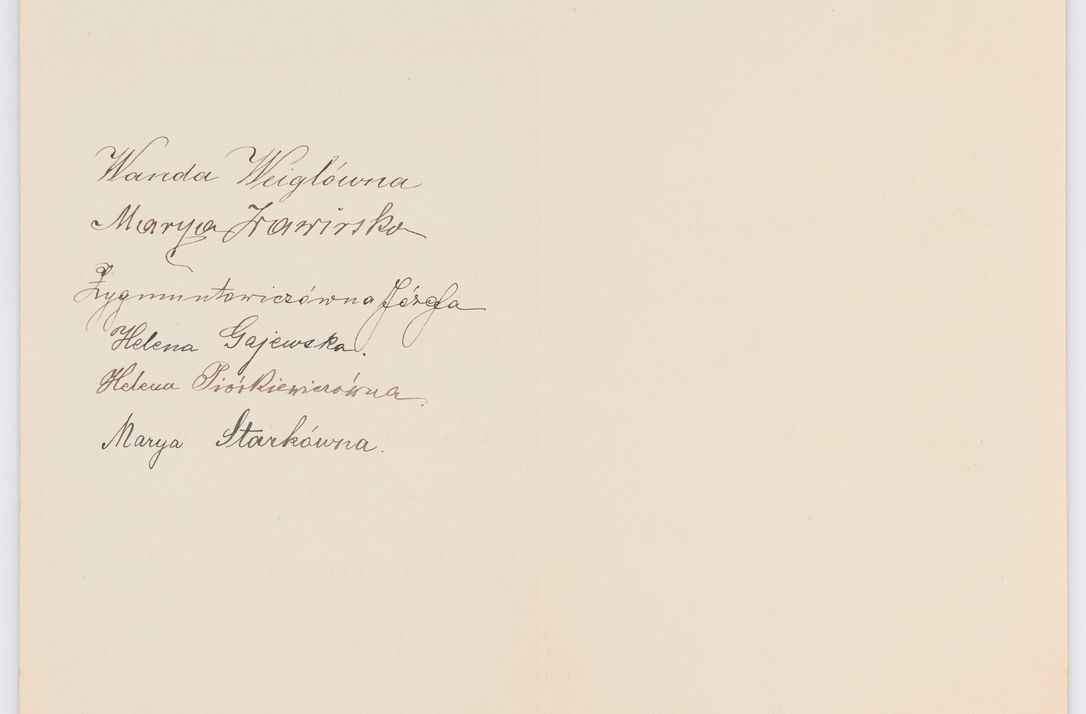 Wanda Weiglówna
Marya Zawirska
Zygmuntowiczówna Józefa
Helena Gajewska.
Helena Piórkiewiczówna.
Marya Starkówna.